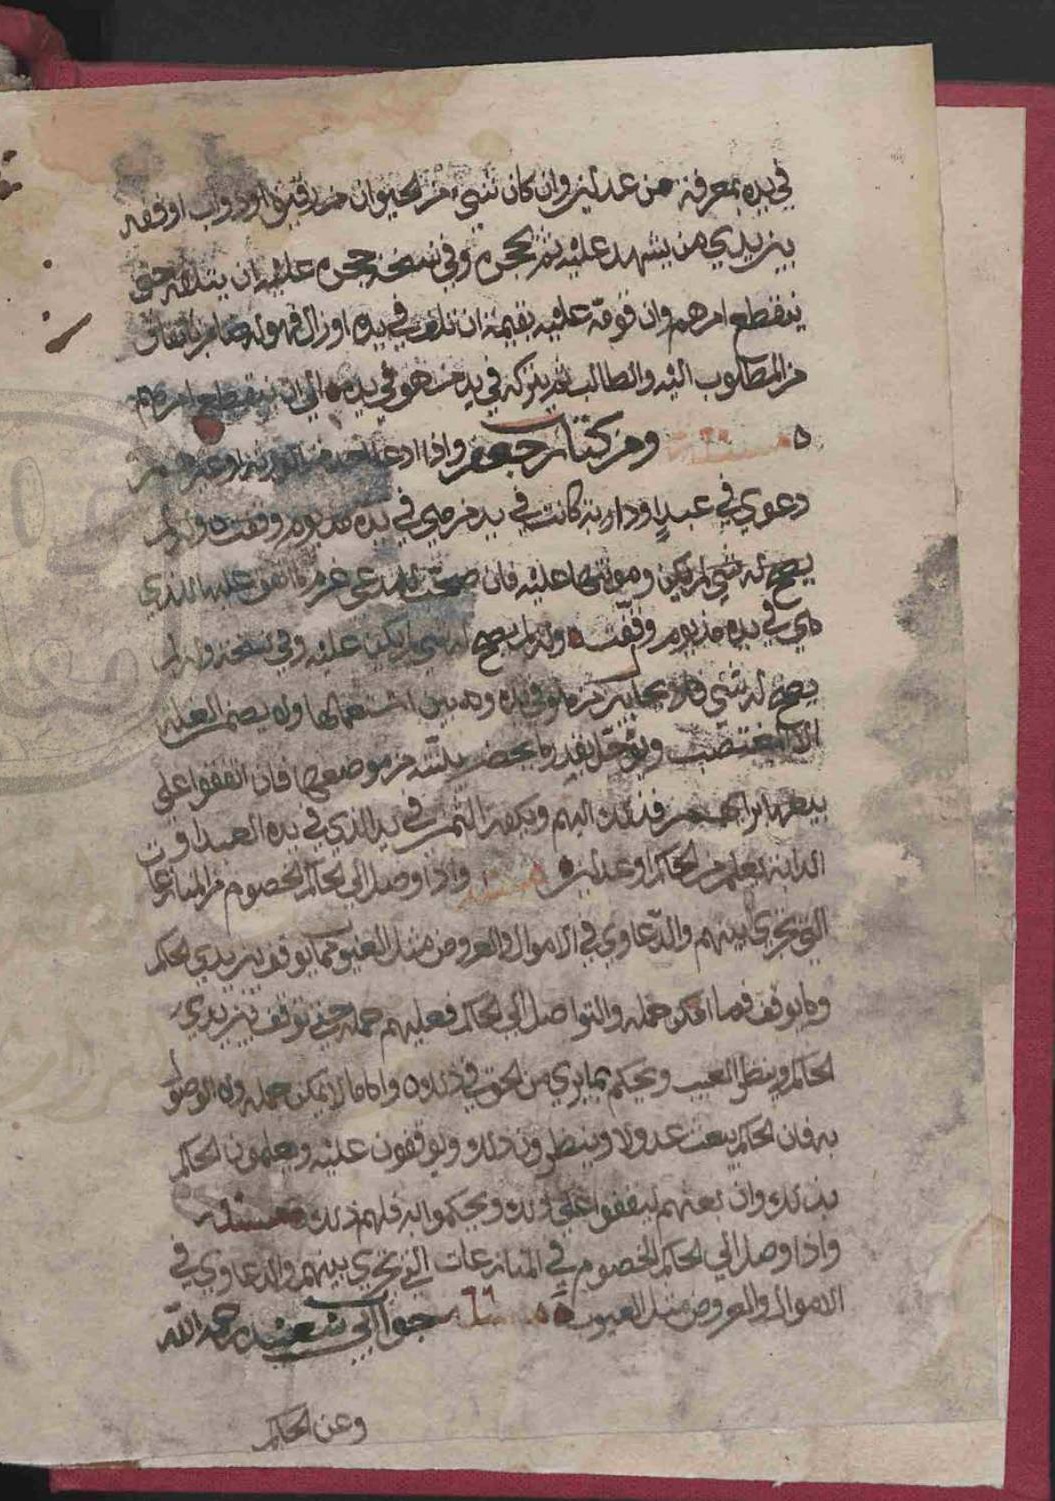 في يده بمعرفة من عدلين وان كان شيء من الحيوان من الرقيق او الدواب اوقفه
بين يدي من يشهد عليه ثم يحجره وفي نسخة حجره عليه ان يتلفه حتى
ينقطع امرهم وان قومه عليه بقيمة ان تلف في يده او زال فهو له ضامن باتفاق
من المطلوب اليه والطالب ثم يتركه في يد من هو في يده الى ان ينقطع امرهم
مسئلة ومن كتاب ابن جعفر واذا ادعا
دعوى في عبد او دابة كانت في يد من هي في يده مذ يوم وقفت وان لم
يصح له شي لم يكن ومونتها عليه فان صحت للمدعي غرم ما انفق عليها الذي
هي في يده مذ يوم وقفت وان لم يصح له شي لم يكن عليه وفي نسخة وان لم
يصح له شي فلا يحال بين من هو في يده وبين استعمالها ولا يضمن الغلة
الا المغتصب ويؤجل بقدر ما يحضر بينته من موضعها فان اتفقوا على
بيعها فذلك اليهم ويكون الثمن في يد الذي في يده العبد او
الدابة بعلم من الحاكم او عدلين مسئلة واذا وصل الى الحاكم الخصوم من المنازعات
التي تجري بينهم والدعاوي في الاموال والعروض مثل العيوب مما يوقف بين يدي الحكم
وما يوقف فما امكن حمله والتواصل الى الحاكم فعليهم حمله حتى توقف بين يدي
الحاكم وينظر العيب ويحكم بما يرى من الحق في ذلك واما ما لا يمكن حمله ولا الوصول
به فان الحاكم يبعث عدولا وينظرون ذلك ويوقفون عليه ويعلمون الحاكم
بذلك وان بعثهم ليقفوا على ذلك ويحكموا به فلهم ذلك مسئلة
واذا وصل الى الحاكم الخصوم في المنازعات التي تجري بينهم والدعاوي في
الاموال والعروض مثل العيوب مسئلة جواب ابي سعيد رحمه الله
وعن الحاكم